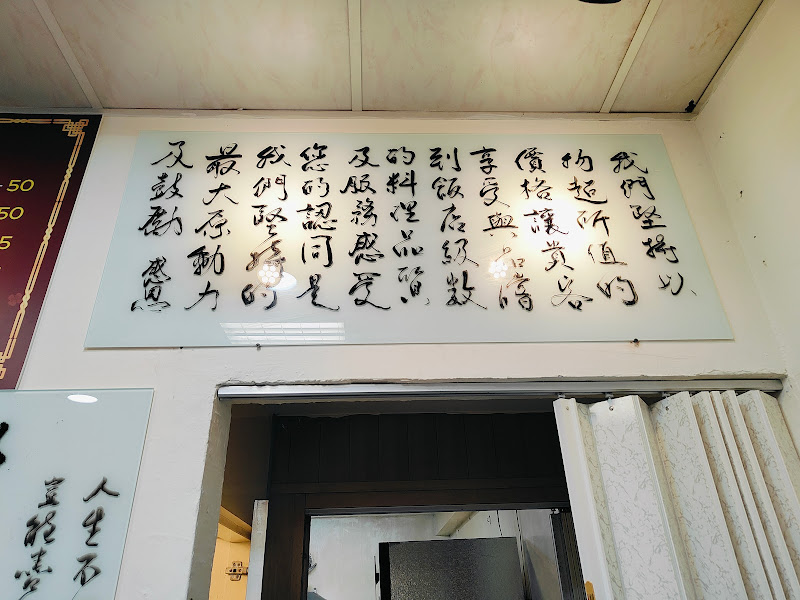 我們堅持以
物超所值的
價格讓貴客
享受與品嚐
到飯店級数
的料理品質
及服務感受
您的認同是
我們堅持的
最大原動力
及鼓勵 感恩
50
50
5
人生不
豈能盡